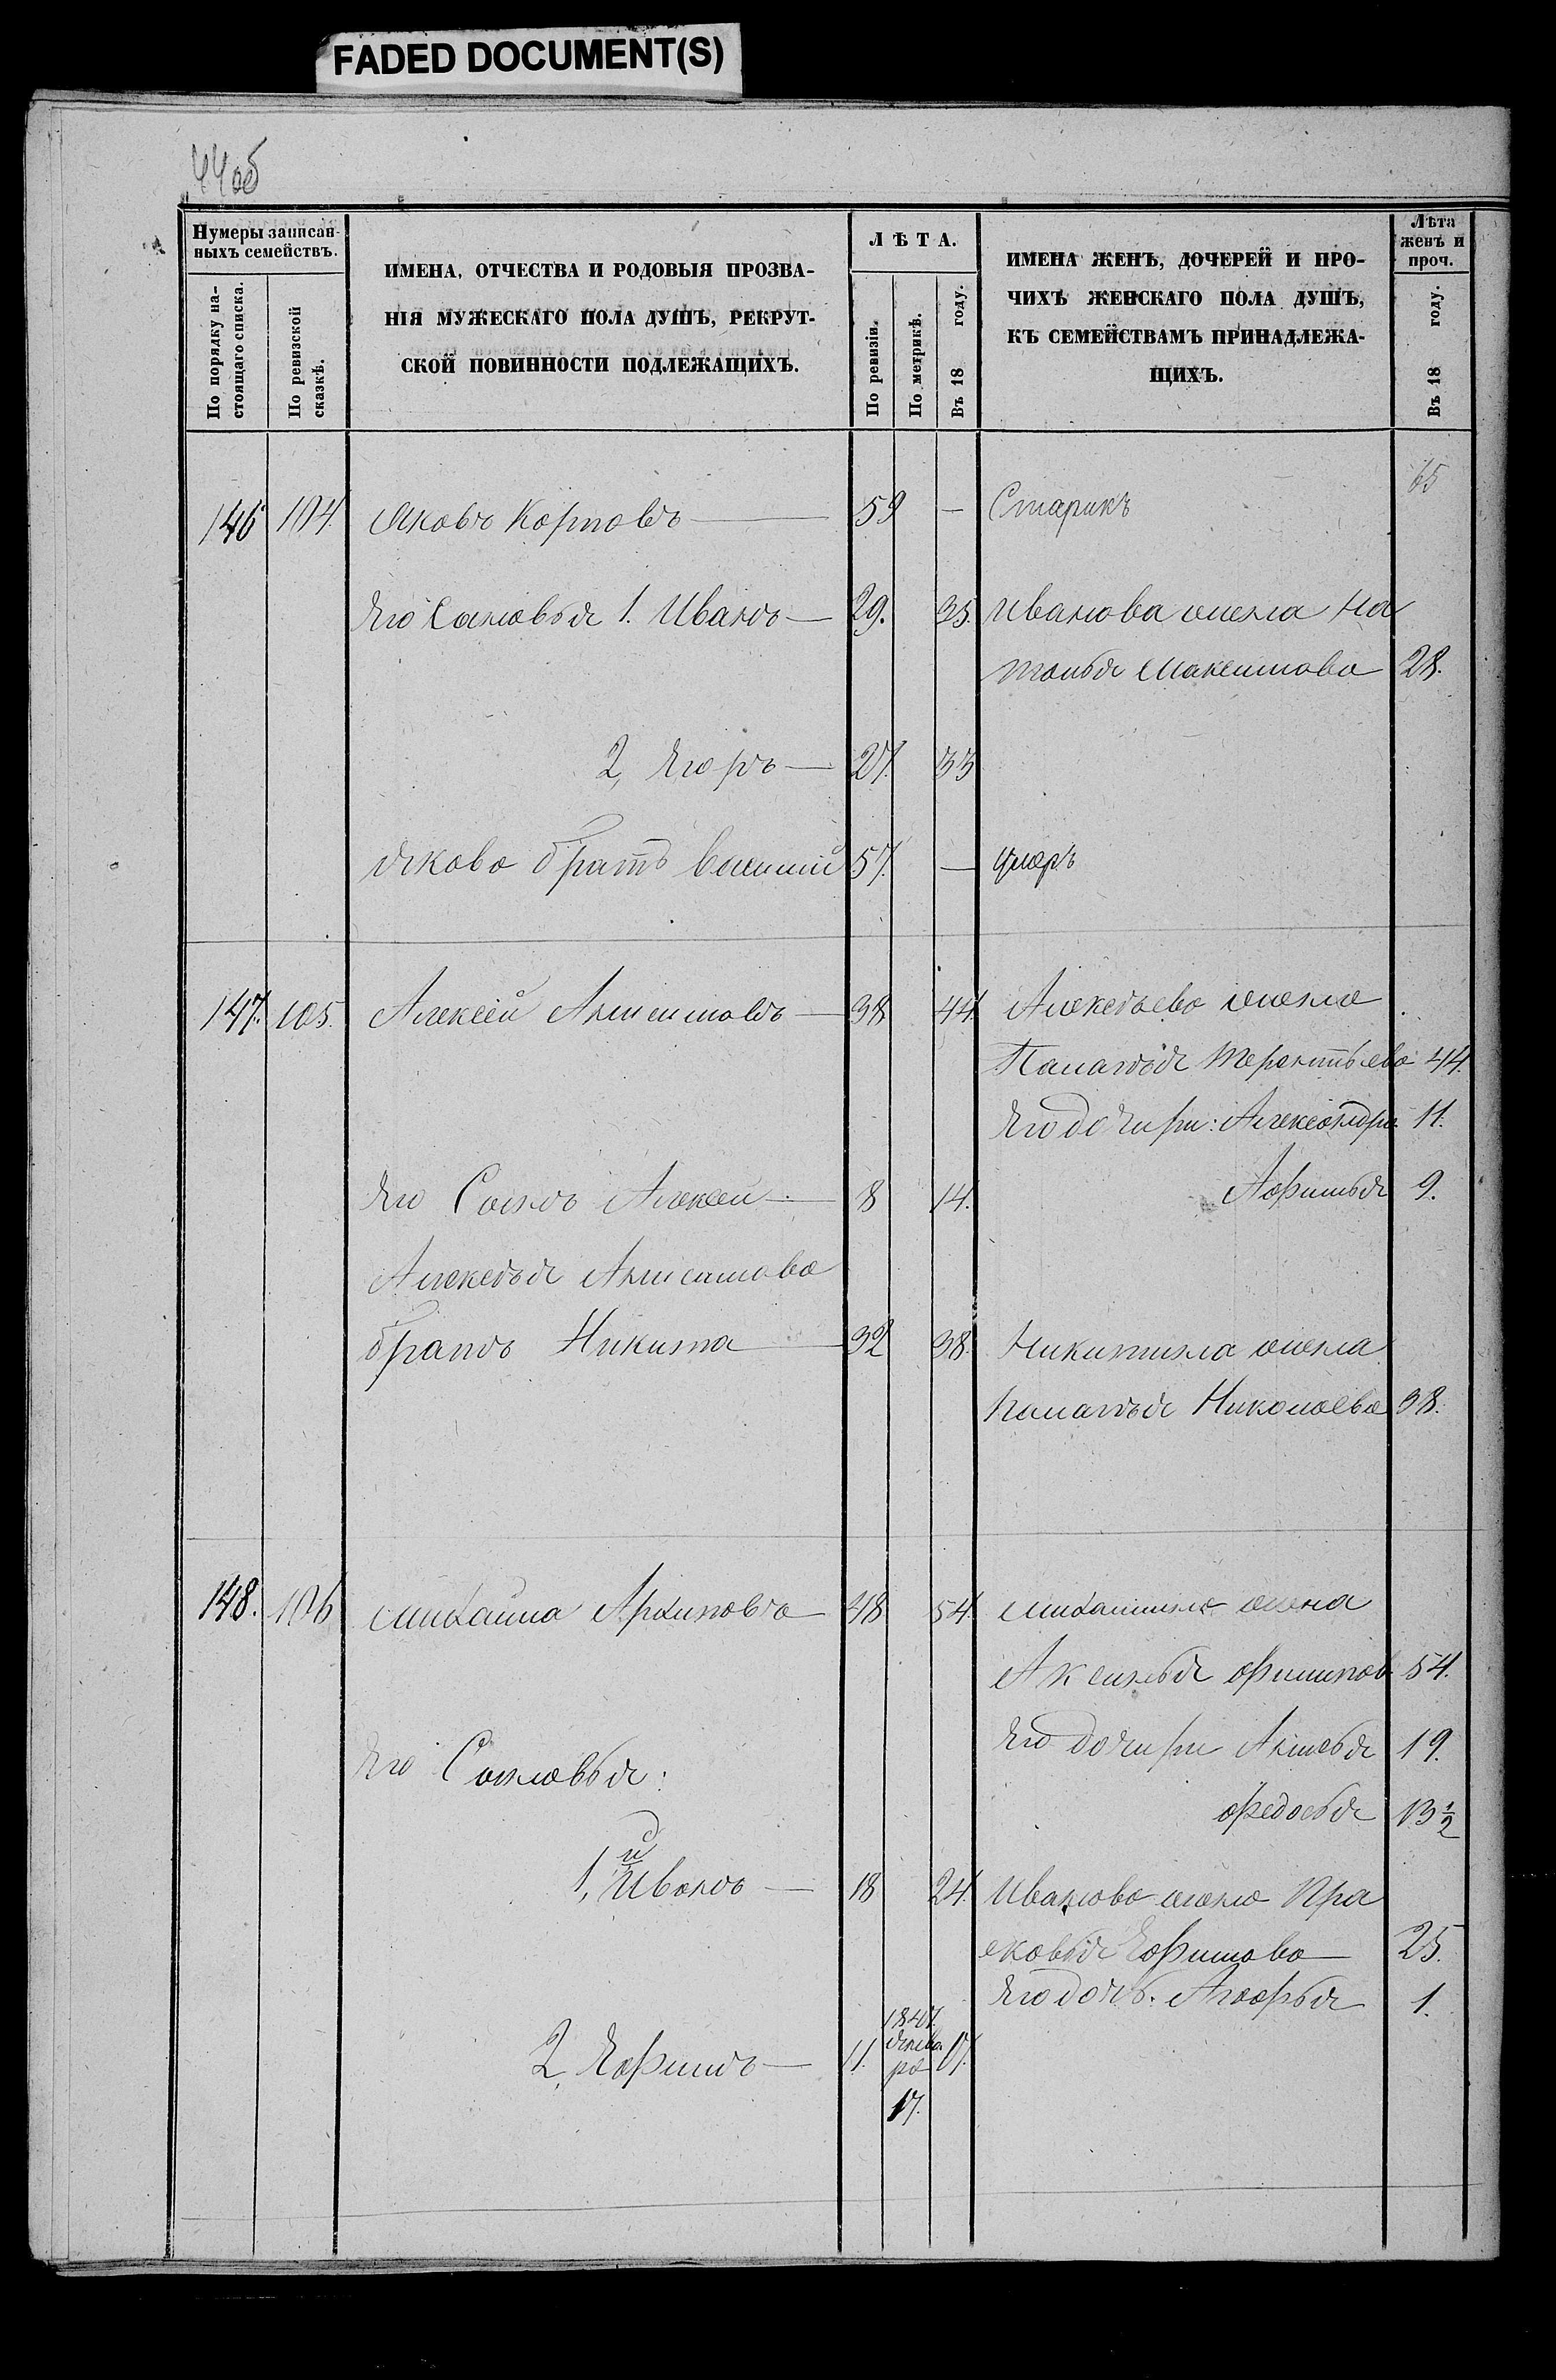 FADED DOCUMENT(S)
44об
Нумеры записан-
ныхъ семействъ.
По порядку на-
стоящаго списка.
По ревизской
сказкѣ.
ИМЕНА, ОТЧЕСТВА И РОДОВЫЯ ПРОЗВА-
НІЯ МУЖЕСКАГО ПОЛА ДУШЪ, РЕКРУТ-
СКОЙ ПОВИННОСТИ ПОДЛЕЖАЩИХЪ.
ЛѢТА.
По ревизіи.
По метрикѣ.
Въ 18 году.
ИМЕНА ЖЕНЪ, ДОЧЕРЕЙ И ПРО-
ЧИХЪ ЖЕНСКАГО ПОЛА ДУШЪ,
КЪ СЕМЕЙСТВАМЪ ПРИНАДЛЕЖА-
ЩИХЪ.
Лѣта
женъ и
проч.
Въ 18 году.
65
146 104. Яковъ Карповъ — 59 — Старикъ
Его Сановья 1. Иванъ — 29. 35. Иванова жена На
талья Максимова 28.
2, Егоръ — 27. 33
Якова братъ 57. — умеръ
147. 105. Алексей Анисимовъ — 38 44. Алексѣева жена
Палагѣя Терентьева 44.
Его дочири: Александра 11.
Его Сынъ Алексей — 8 14. Афимья 9.
Алексѣя Анисимова
братъ Никита — 32 38. Никитина жена
Палагѣя Николаева 38.
148. 106 Михайла Архиповъ — 48 54. Михайлина жена
Аксинья Филипов 54.
Его дочири Анисья 19.
Его Сыновья:
Федосья 13 1/2
1, Иванъ — 18 24. Иванова жена Пра
сковья Ефимова 25.
Его дочь. Агафья 1.
2, Ефимъ — 11. 1847. Генва ря 17. 17.